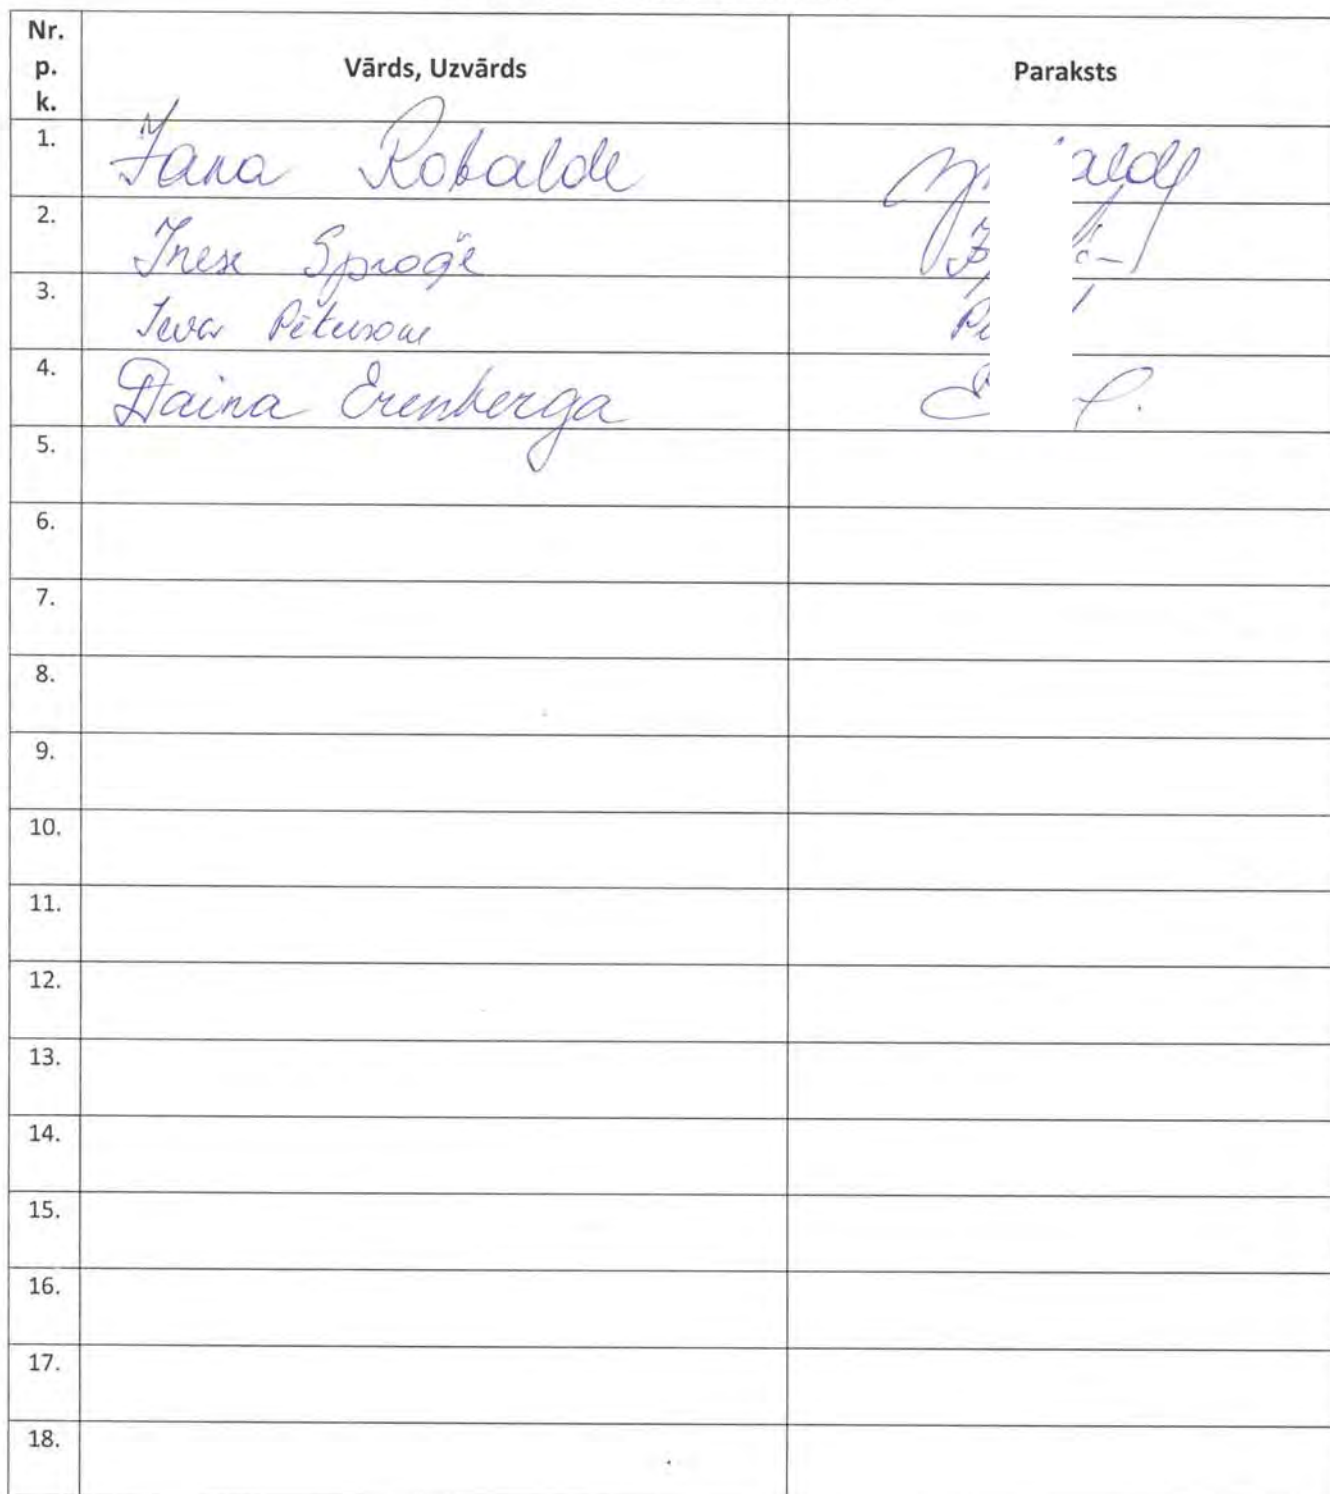 Nr. p. k. Vārds, Uzvārds Paraksts
1. Jana Robalde
2. Inese Sproģe
3. Ieva Pētersone
4. Daina Erenberga
5.
6.
7.
8.
9.
10.
11.
12.
13.
14.
15.
16.
17.
18.